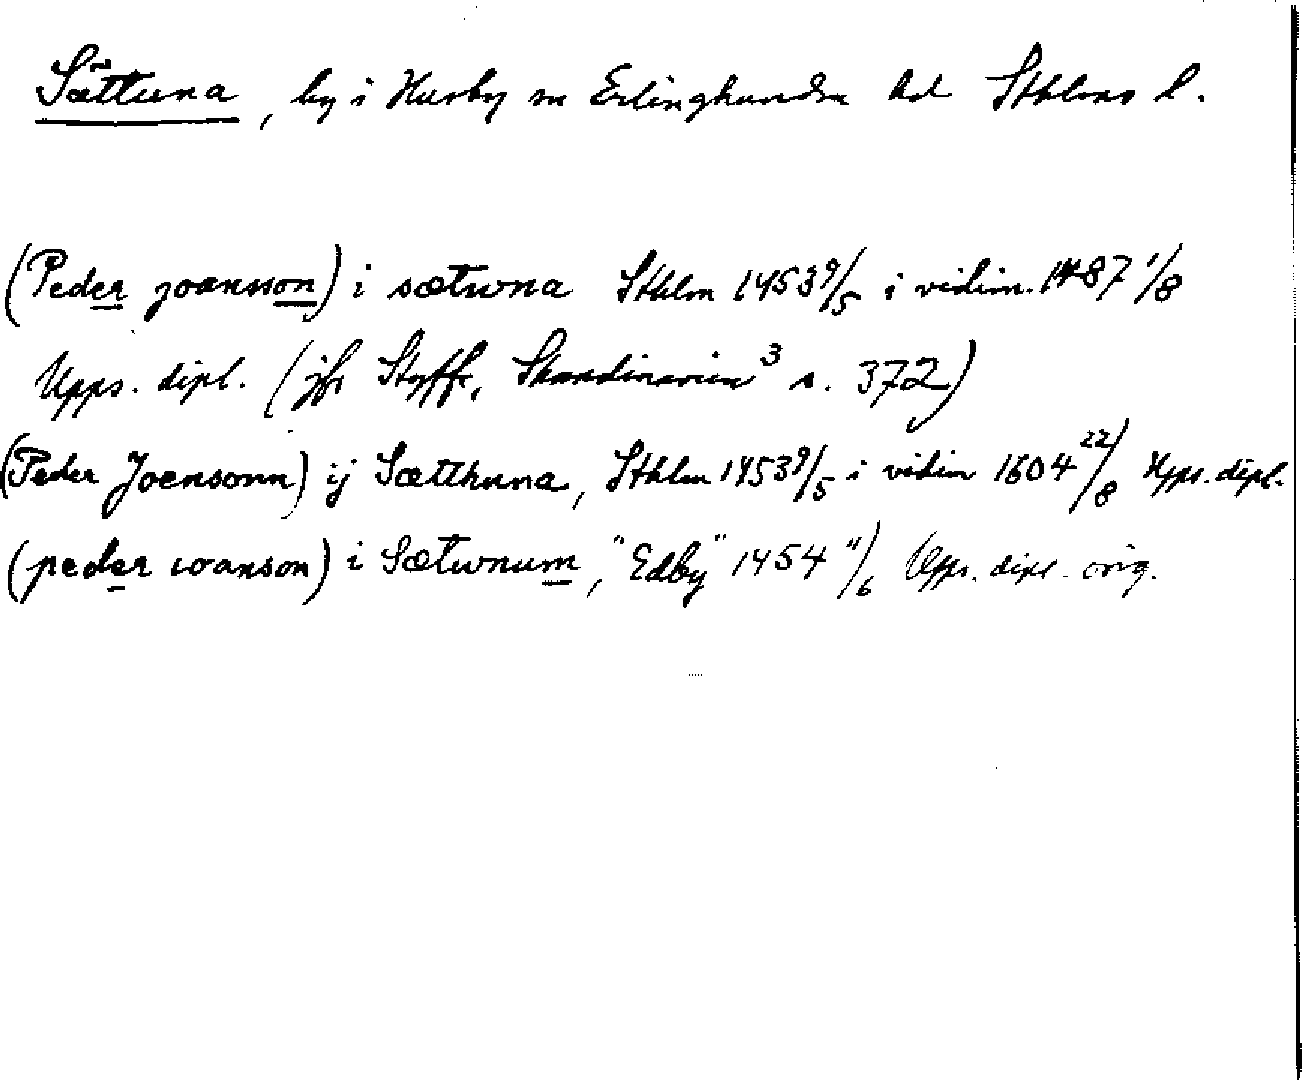 Sättuna, by i Husby sn Erlinghundra hd Sthlms l.
(Peder joansson) i sætwna Sthlm 1453 9/5 i vidim. 1487 1/8
Upps. dipl. (jfr Styffe, Skandinavien³ s. 372)
(Peder Joensonn) ij Sætthuna, Sthlm 1453 9/5 i vidim 1604 22/8 Upps. dipl.
(peder ioanson) i Sætwnum, "Edby" 1454 11/6 Upps. dipl. orig.